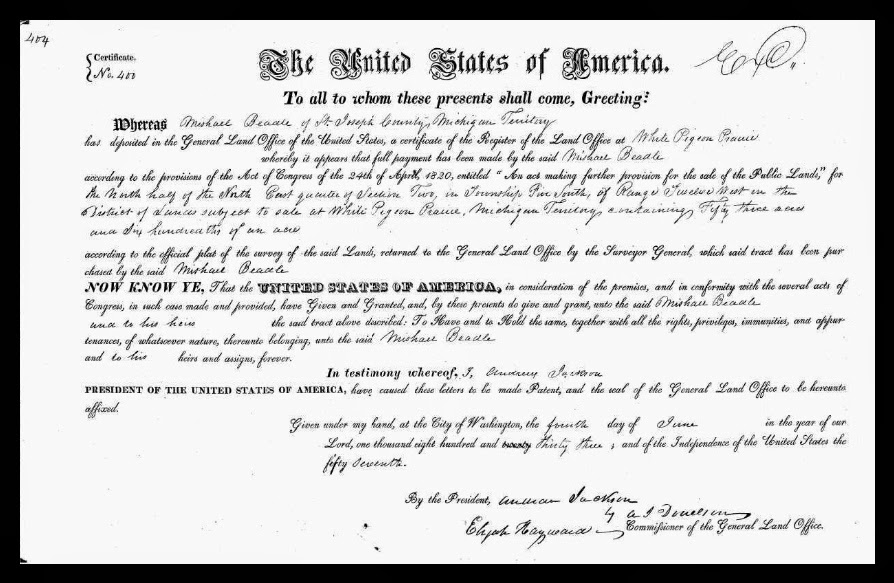 404
Certificate.
No. 400
The United States of America.
To all to whom these presents shall come, Greeting:
Whereas Mishael Beadle of St. Joseph County, Michigan Territory
has deposited in the General Land Office of the United States, a certificate of the Register of the Land Office at White Pigeon Prairie
whereby it appears that full payment has been made by the said Mishael Beadle
according to the provisions of the Act of Congress of the 24th of April, 1820, entitled "An act making further provision for the sale of the Public Lands," for
the North half of the North East quarter of Section Two, in Township Five South, of Range Twelve West in the
District of Lands subject to sale at White Pigeon Prairie, Michigan Territory, containing Fifty three acres
and Six hundredths of an acre
according to the official plat of the survey of the said Lands, returned to the General Land Office by the Surveyor General, which said tract has been pur
chased by the said Mishael Beadle
NOW KNOW YE, That the UNITED STATES OF AMERICA, in consideration of the premises, and in conformity with the several acts of
Congress, in such case made and provided, have Given and Granted, and, by these presents do give and grant, unto the said Mishael Beadle
and to his heirs the said tract above described: To Have and to Hold the same, together with all the rights, privileges, immunities, and appur
tenances, of whatsoever nature, thereunto belonging, unto the said Mishael Beadle
and to his heirs and assigns, forever.
In testimony whereof, I, Andrew Jackson
PRESIDENT OF THE UNITED STATES OF AMERICA, have caused these letters to be made Patent, and the seal of the General Land Office to be hereunto
affixed.
Given under my hand, at the City of Washington, the fourth day of June in the year of our
Lord, one thousand eight hundred and twenty thirty three; and of the Independence of the United States the
fifty seventh.
By the President, Andrew Jackson
by A J Donelson
Elijah Hayward Commissioner of the General Land Office.